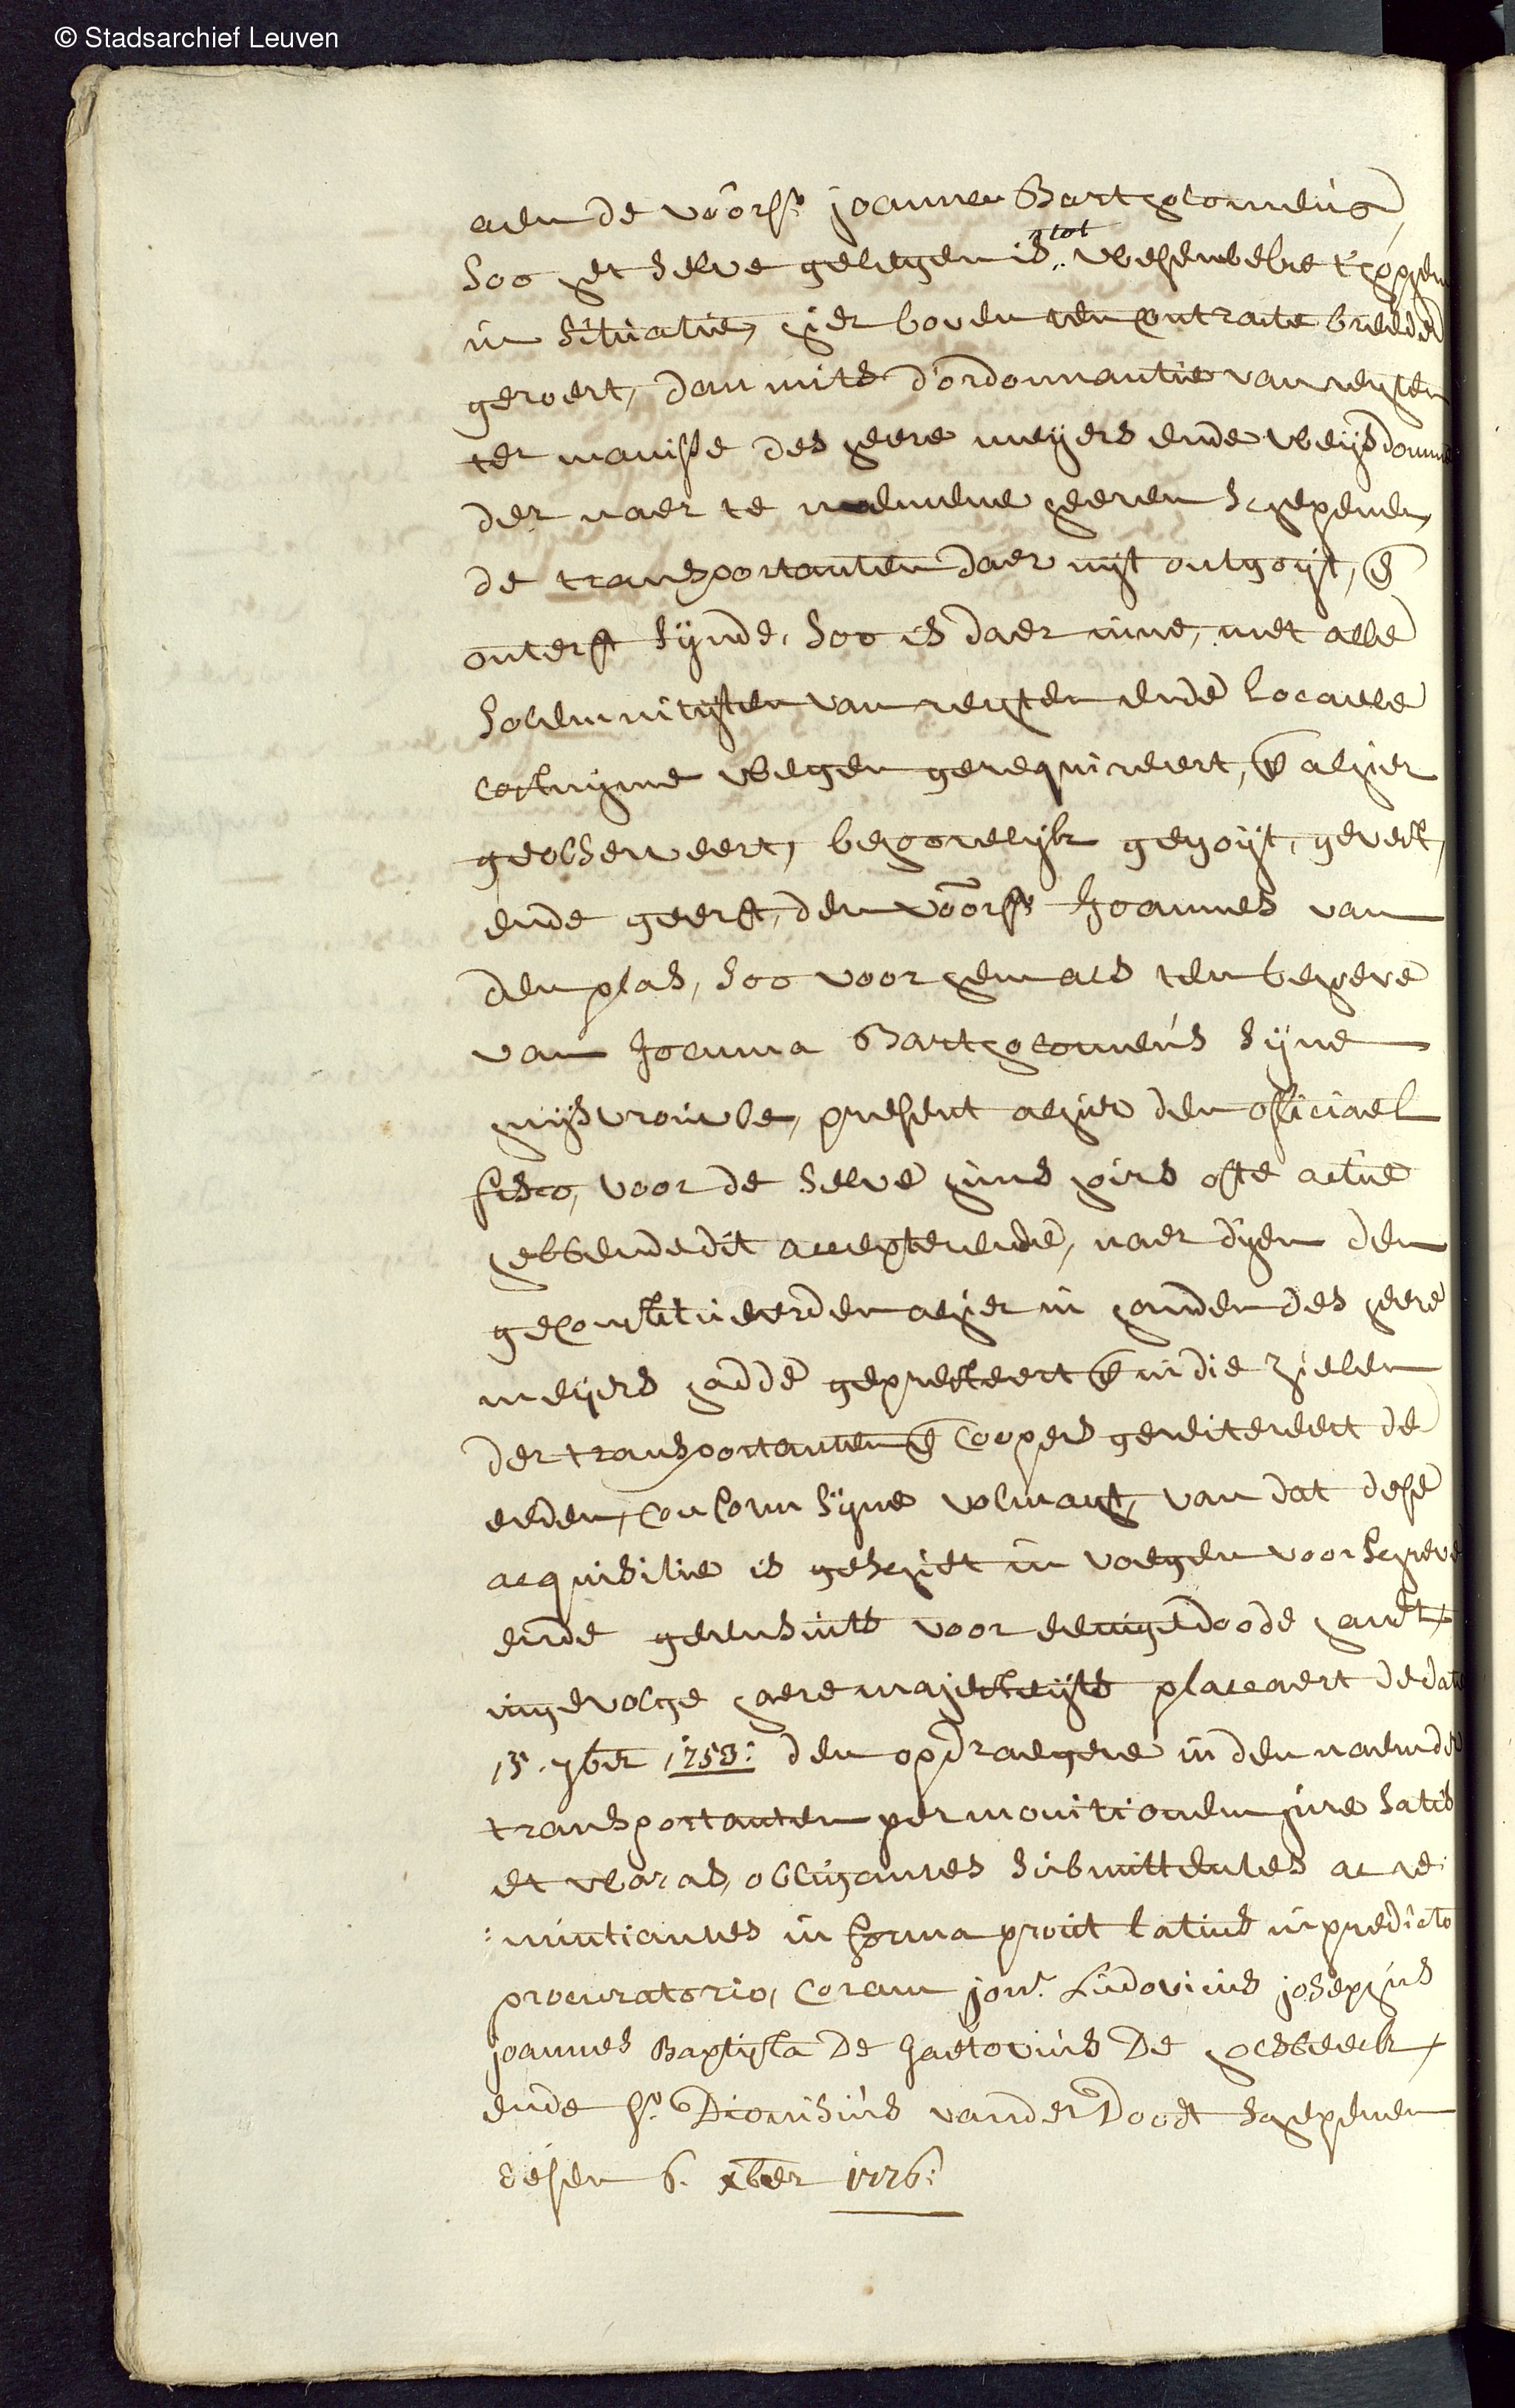 © Stadsarchief Leuven
aen de voorss. joanna Bartholomeús,
soo het selve gelegen is tot wesenbeke t'hoppem
in sitúatie, hier boven ten contracte breeder
geroert, dan mits d'ordonnantie van rechten
ter manisse des heere meyers ende wijsdomme
der naer te noemene heeren schepenen,
de transportanten daer uijt ontgoijt, en̄
onterft sijnde, soo is daer inne, met alle
solemniteijten van rechten ende locaele
costuijme wegen gerequireert, en̄ alhier
geobserveert, behoorelijk gegoijt, gevest,
ende geerft, den voorss. Joannes van
den plas, soo voor hem als ten behoeve
van Joanna Bartholomeús sijne
huijsvrouwe, present alhier den officiael
fisco, voor de selve húns hirs ofte actie
hebbende dit accepterende, naer dijen den
geconstitúeerden alhier in handen des heere
meyers hadde gepresteert en̄ in die zielen
der transportanten en̄ coopers gereitereert de
eeden, conform sijne volmaght, van dat dese
acquisitie is geschiet in voegen voorschreve
ende geensints voor eenige doode handt,
ingevolge haere majesteijts placcaert de dato
15. 7ber 1753: den opdraegere in den naem der
transportanten per monitionem júre satis
et waras, obligantes súbmittentes ac re:
:núntiantes in forma proút latiús in predicto
procuratorio, Coram jonr. Lúdovicús josephús
joannes Baptista De Hertoviús De hosbeeck,
ende sr. Dionisiús vander Doodt schepenen
desen 6. xber 1776: